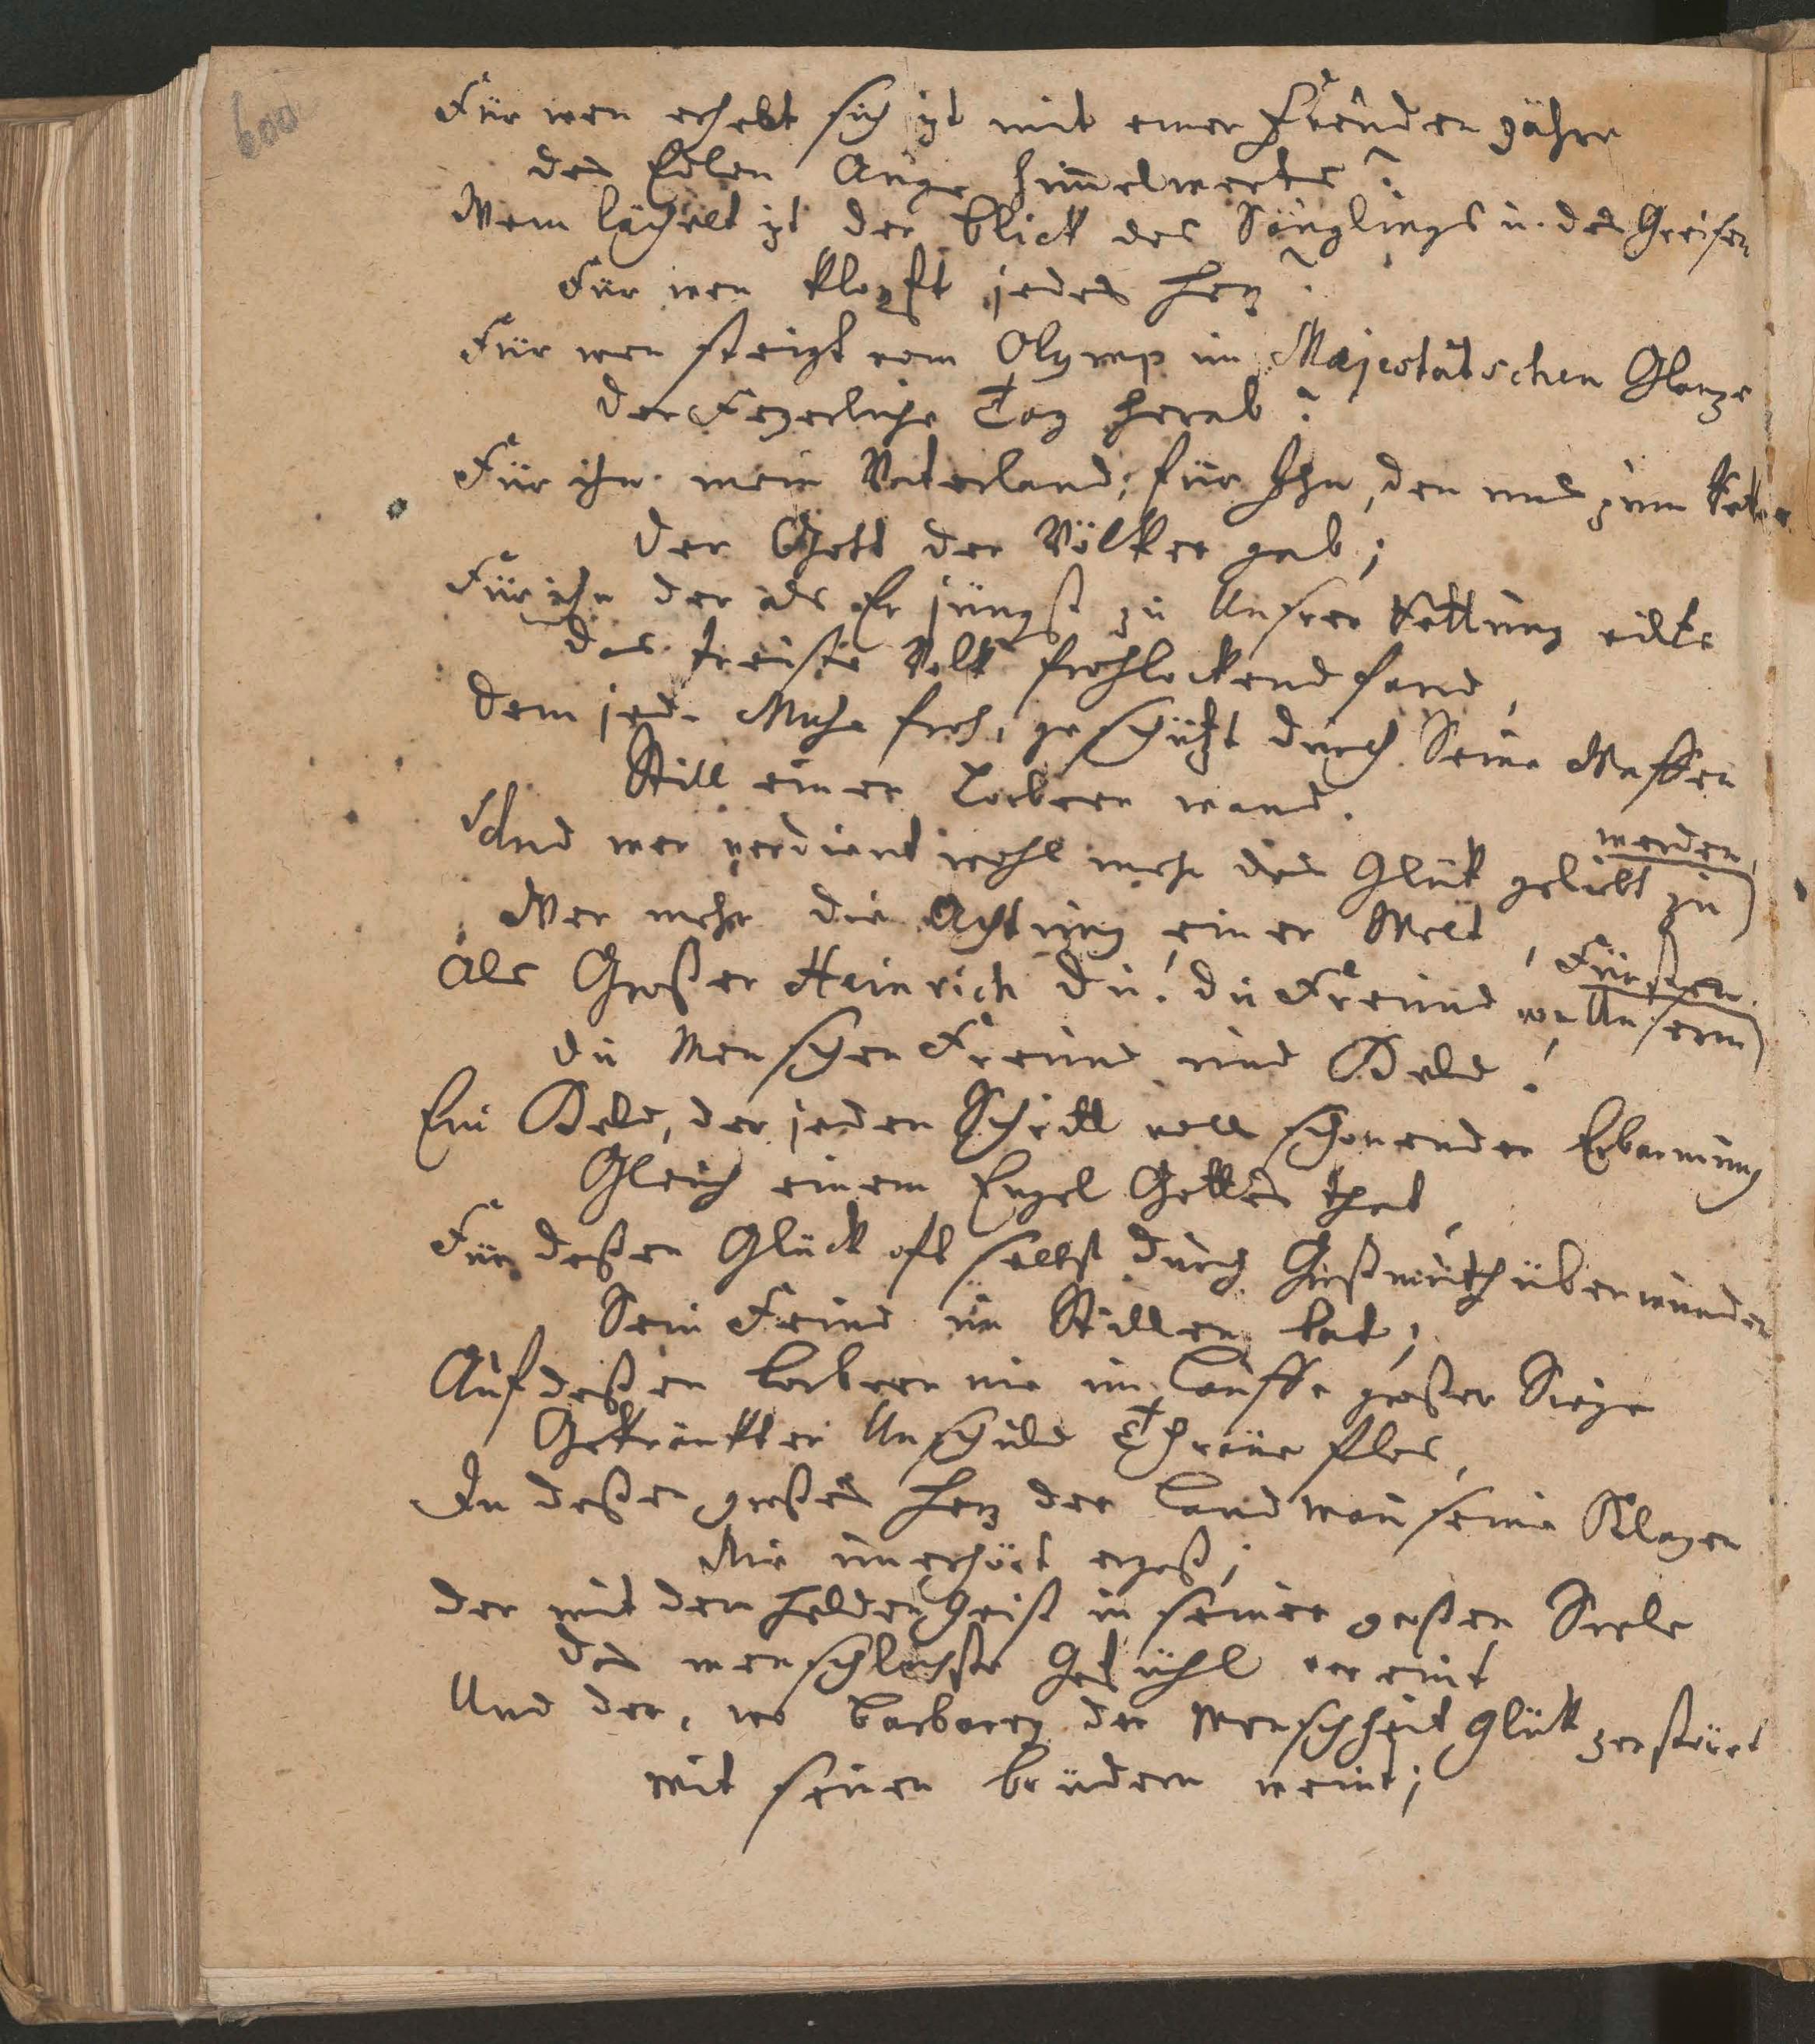 600
Für wen erhebt sich izt mit einer Freuden zähre
des Edlen Auge him̄elwerts?
Wem lächelt izt der Blick des Säuglings u. des Greisen
Für wen klopft jedes Herz?
Für wen steigt vom Olymp im Majestätschen Glanze
Der Feyerliche Tag herab?
Für ihn mein Vaterland; für Ihn, den uns zum Retter
Der Gott der Völker gab;
Für ihn der als Er jüngst zu Unsrer Rettung eilte
das treuste Volk frohlockend fand,
Dem jede Muse froh, geschüzt durch Seine Waffen
Still einen Lorbeer wand.
Und wer verdient wohl mehr das Glük geliebt zu werden,
Wer mehr die Achtung einer Welt,
Als Großer Heinrich du! du Freund von Unserm Fürsten
du Menschen Freund und Held!
Ein Held, der jeden Schritt voll schonender Erbarmung
Gleich einem Engel Gottes that,
Für deßen Glück oft selbst durch Großmuth überwunden
Sein Feind im Stillen bat;
Auf deßen Lorbeern nie im Lauffe großer Siege
Gekränkter Unschuld Thräne flos,
In deßen großes Herz der Landman̄ seine Klagen
Nie unerhört ergoß;
Der mit dem Helden Geist in seiner großen Seele
das menschlichste Gefühl vereint
Und der, wo Barbarey der Menschheit Glük zerstöret
mit seinen Brüdern weint;